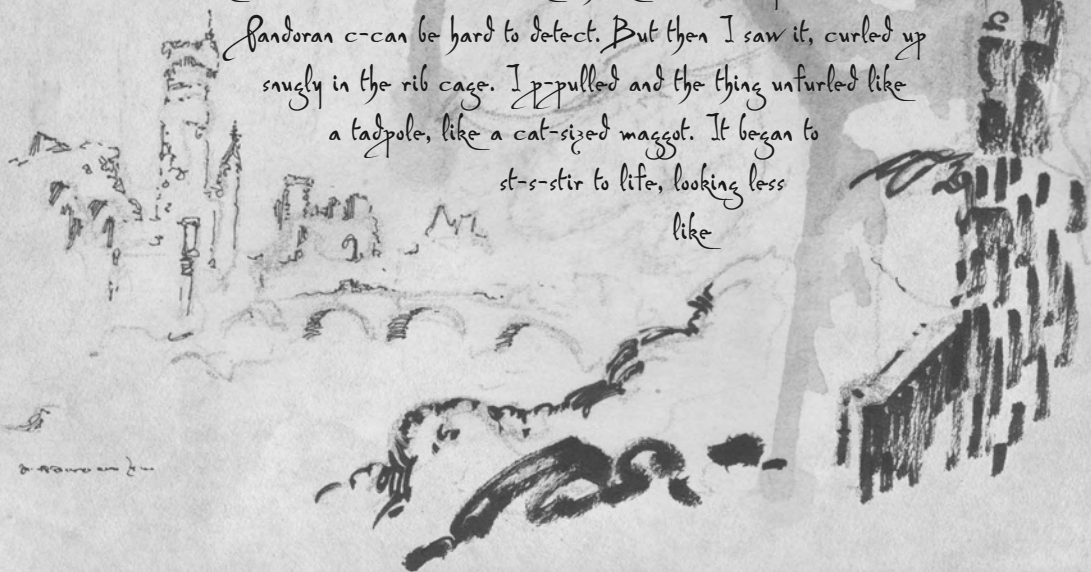 Pandoran c-can be hard to detect. But then I saw it, curled up
snugly in the rib cage. I p-pulled and the thing unfurled like
a tadpole, like a cat-sized maggot. It began to
st-s-stir to life, looking less
like